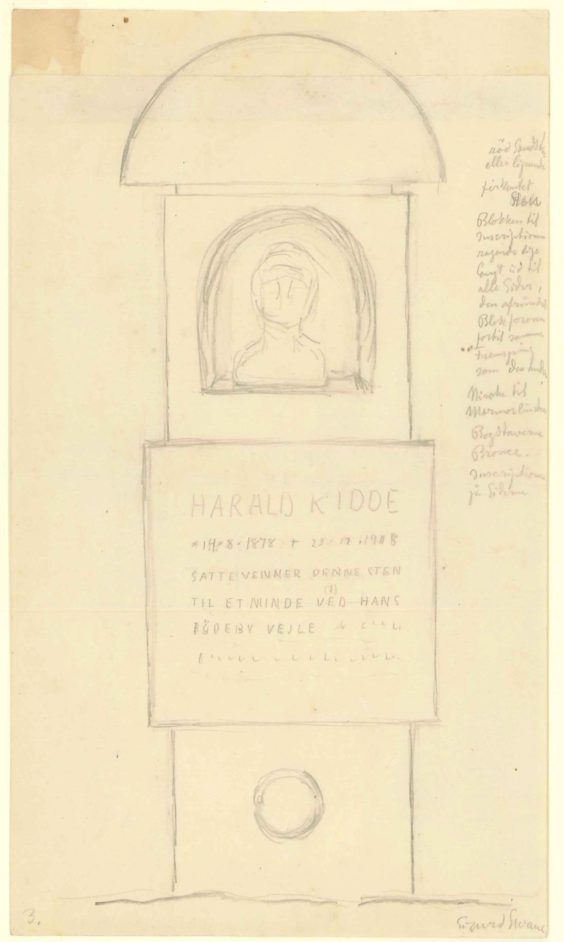 HARALD KIDDE
*14·8·1878 † 23·11·1918
SATTE VENNER DENNE STEN
TIL ET MINDE VED HANS
FÖDEBY VEJLE
rød Sandst
eller lignende
firkantet
Blokken til
Inscriptionen
ragende lige
langt ud til
alle Sider,
den
Blok foroven
fortil samme
Fremspring
som den
Niche til
Marmor
Bogstaverne
Bronce.
Inscriptionen
på Siderne
3.
Sigurd Swane